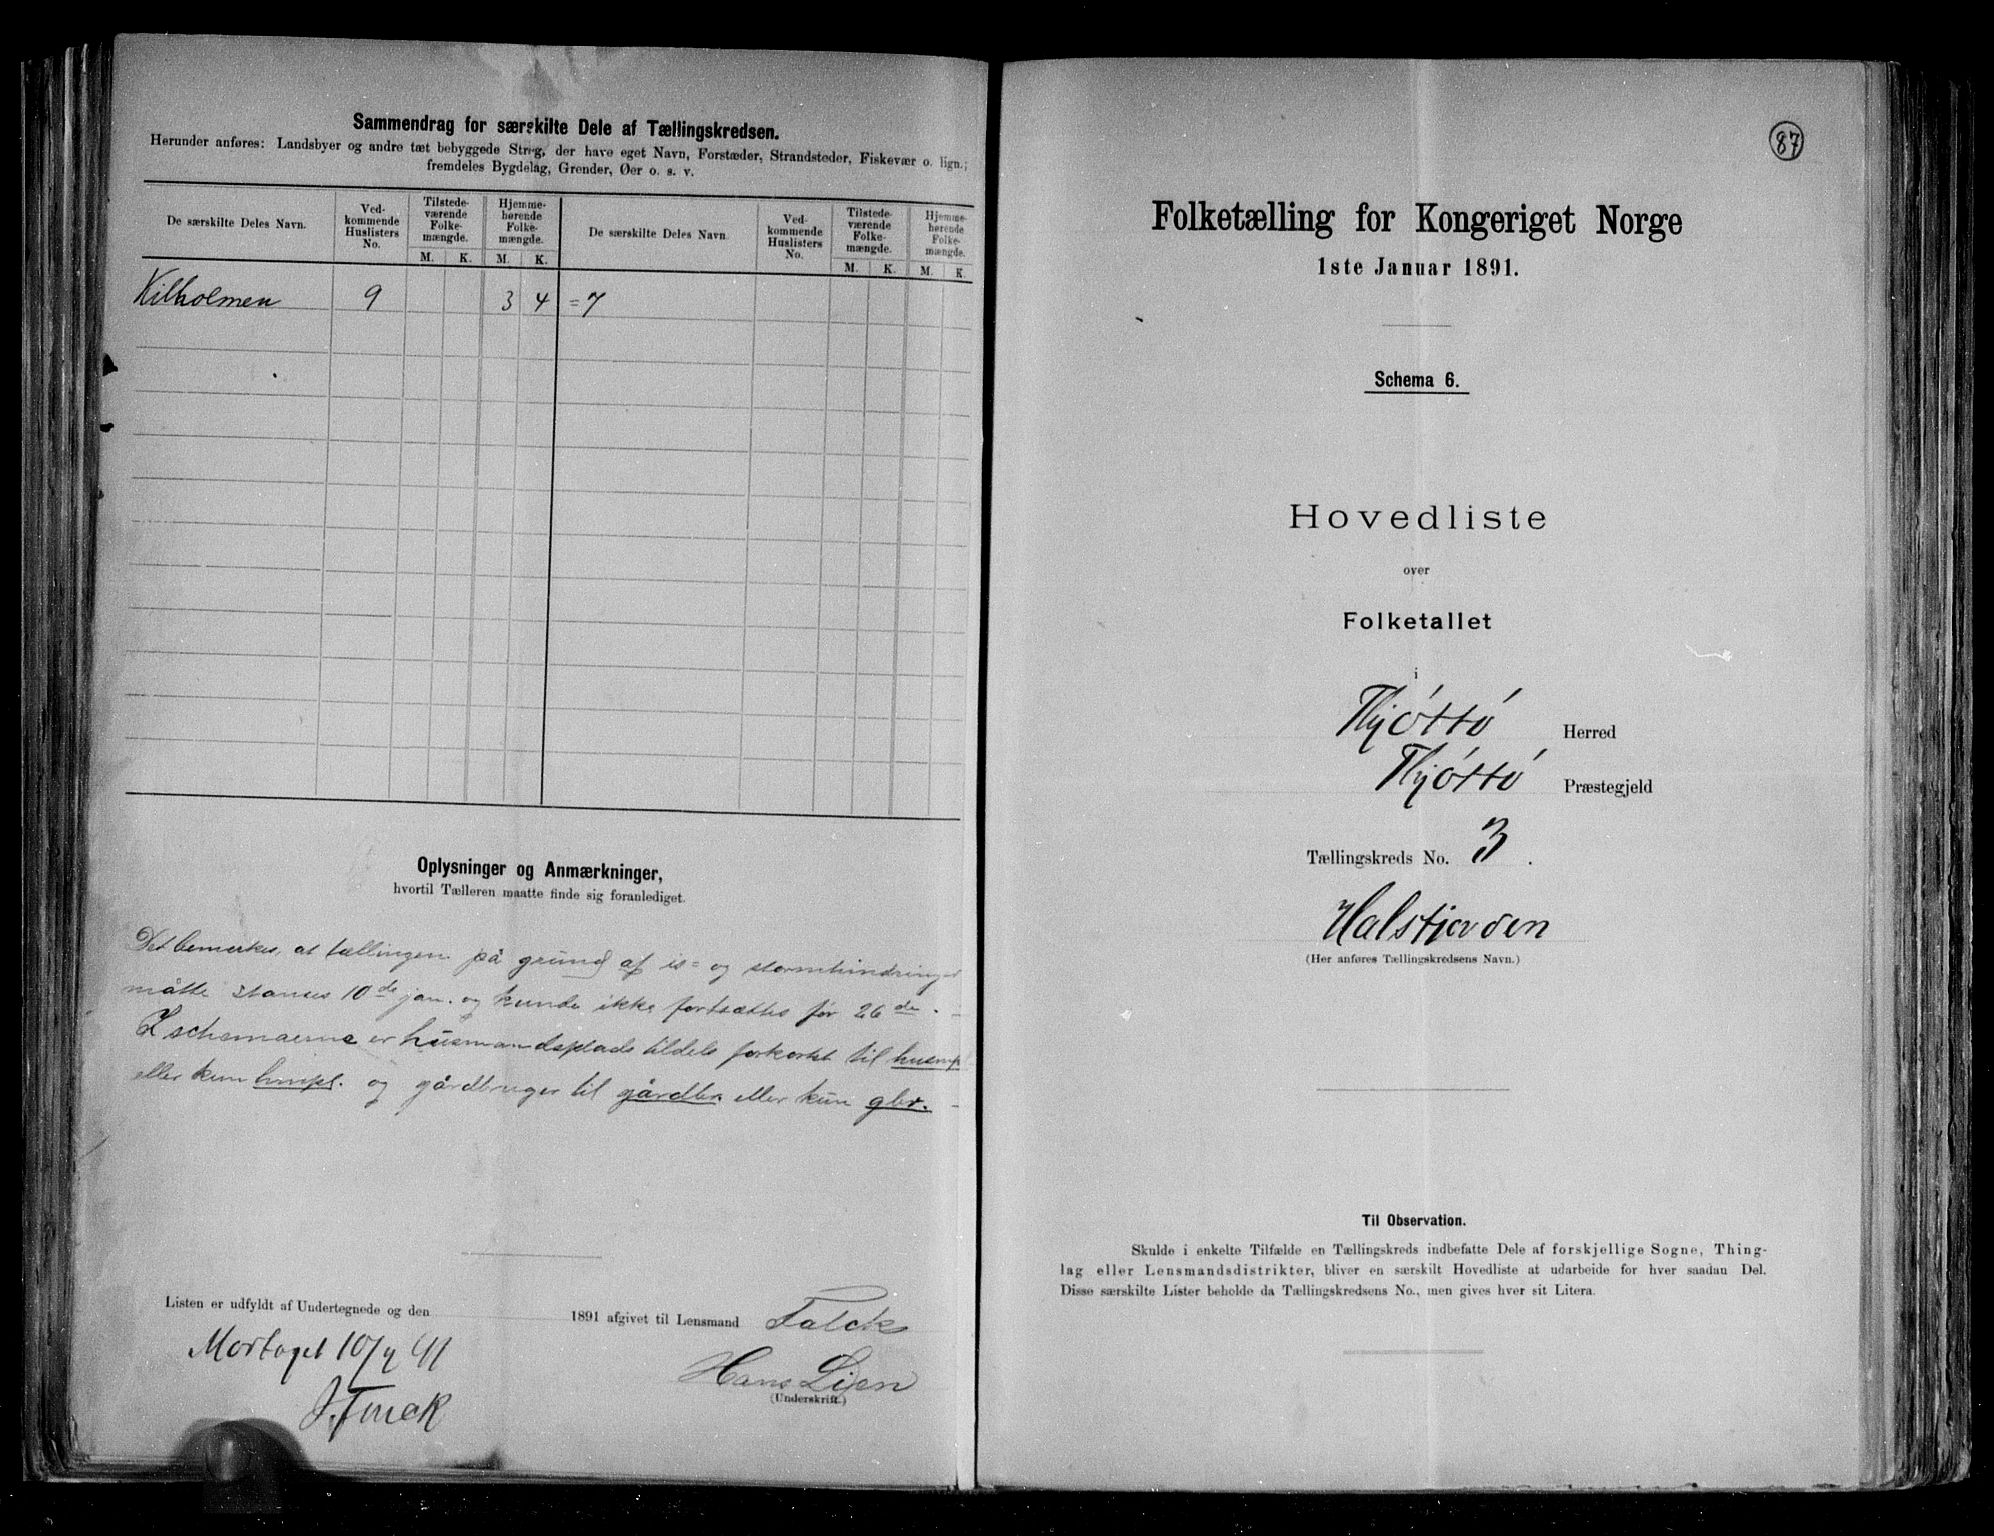 Sammendrag for særskilte Dele af Tællingskredsen.
Herunder anføres: Landsbyer og andre tæt bebyggede Strøg, der have eget Navn, Forstæder, Strandsteder, Fiskevær o. lign.;
fremdeles Bygdelag, Grender, Øer o. s. v.
De særskilte Deles Navn. Ved-kommende Huslisters No. Tilstede-værende Folke-mængde. Hjemme-hørende Folke-mængde. De særskilte Deles Navn. Ved-kommende Huslisters No. Tilstede-værende Folke-mængde. Hjemme-hørende Folke-mængde.
M. K. M. K. M. K. M. K.
Kilholmen 9 3 4 = 7
Oplysninger og Anmærkninger,
hvortil Tælleren maatte finde sig foranlediget.
Det bemerkes, at tællingen på grund af is= og stormhindringer
måtte standses 10de jan. og kunde ikke fortsættes før 26de. -
I schemaerne er husmandsplads tildels forkortet til husmpl
eller kun hmpl. og gårdbruger til gårdbr. eller kun gbr. -
Listen er udfyldt af Undertegnede og den 1891 afgivet til Lensmand Falck
Hans Lien
(Underskrift.)
87
Folketælling for Kongeriget Norge
1ste Januar 1891.
Schema 6.
Hovedliste
over
Folketallet
i
Thjøttø Herred
Thjøttø Præstegjeld
Tællingskreds No. 3.
Halsfjorden
(Her anføres Tællingskredsens Navn.)
Til Observation.
Skulde i enkelte Tilfælde en Tællingskreds indbefatte Dele af forskjellige Sogne, Thing-
lag eller Lensmandsdistrikter, bliver en særskilt Hovedliste at udarbeide for hver saadan Del.
Disse særskilte Lister beholde da Tællingskredsens No., men gives hver sit Litera.